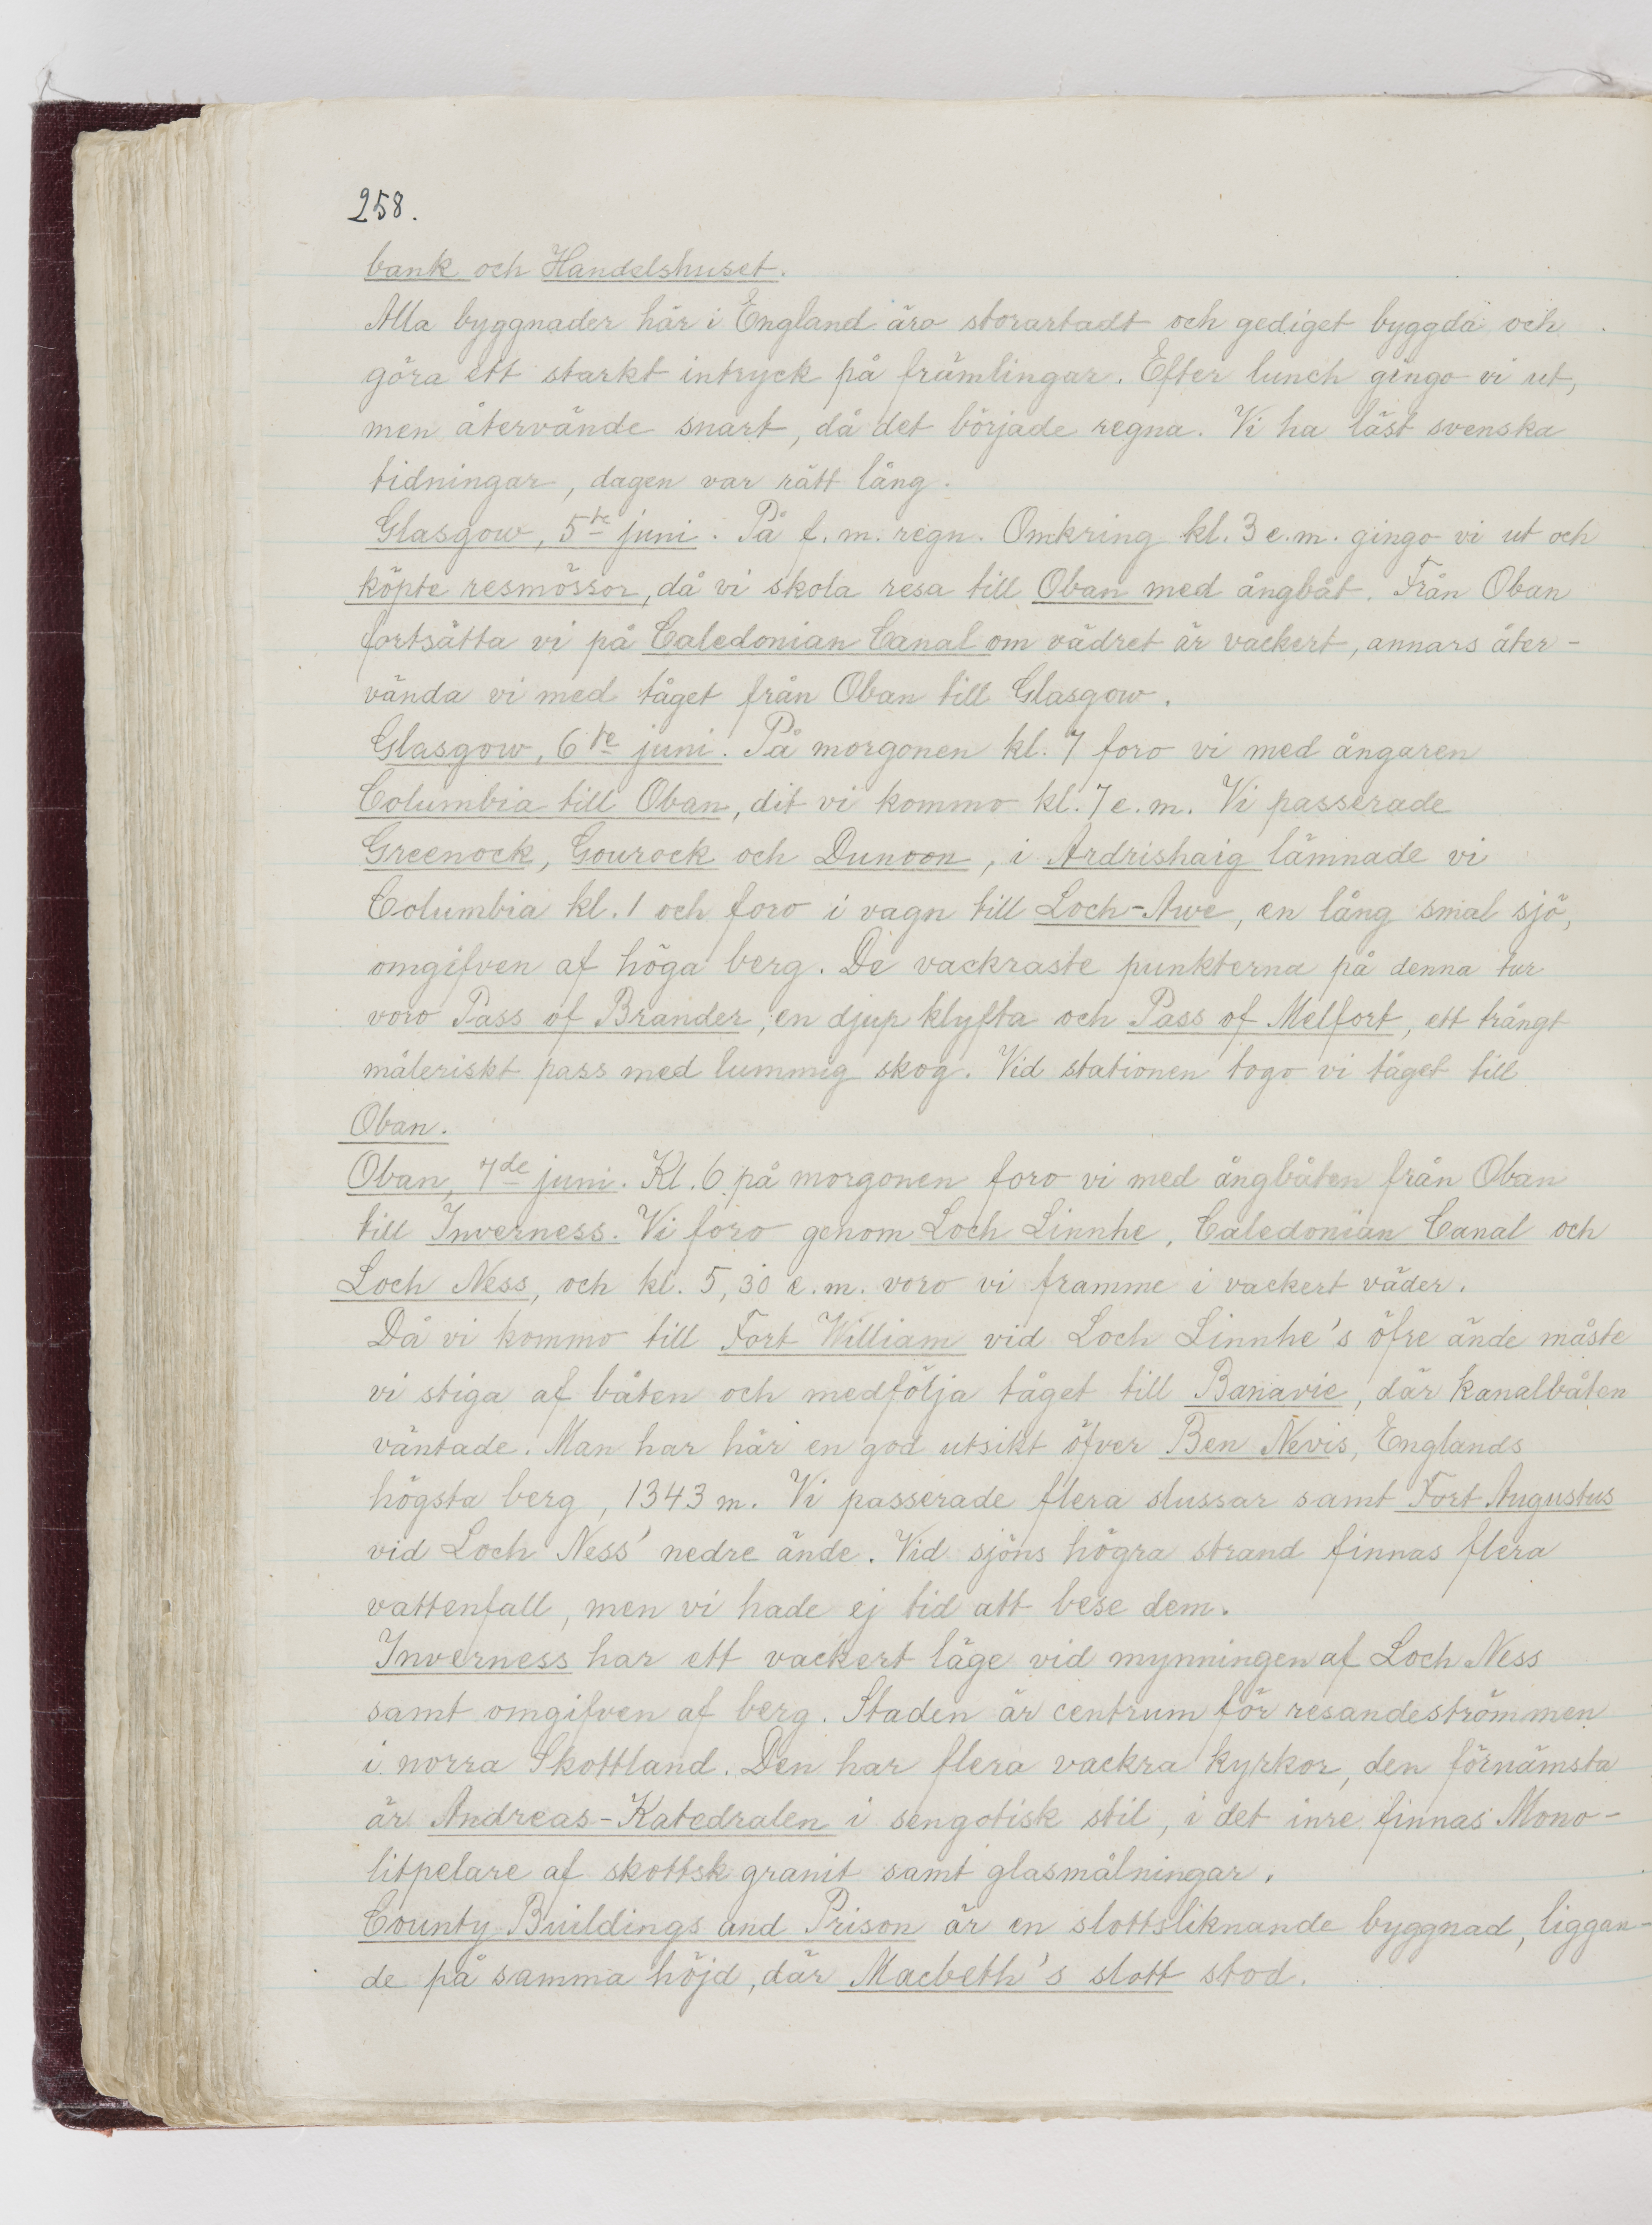 258.
bank och Handelshuset.
Alla byggnader här i England äro storartadt och gediget byggda och
göra ett starkt intryck på främlingar. Efter lunch gingo vi ut,
men återvände snart, då det började regna. Vi ha läst svenska
tidningar, dagen var rätt lång.
Glasgow, 5te juni. På f. m. regn. Omkring kl. 3 e.m. gingo vi ut och
köpte resmössor, då vi skola resa till Oban med ångbåt. Från Oban
fortsätta vi på Caledonian Canal om vädret är vackert, annars åter-
vända vi med tåget från Oban till Glasgow.
Glasgow, 6te juni. På morgonen kl. 7 foro vi med ångaren
Columbia till Oban, dit vi kommo kl. 7 e.m. Vi passerade
Greenock, Gourock och Dunoon, i Ardrishaig lämnade vi
Columbia kl. 1 och foro i vagn till Loch-Awe, en lång smal sjö,
omgifven af höga berg. De vackraste punkterna på denna tur
voro Pass of Brander, en djup klyfta och Pass of Melfort, ett trångt
måleriskt pass med lummig skog. Vid stationen togo vi tåget till
Oban.
Oban, 7de juni. Kl. 6 på morgonen foro vi med ångbåten från Oban
till Inverness. Vi foro genom Loch Linnhe, Caledonian Canal och
Loch Ness, och kl. 5,30 e.m. voro vi framme i vackert väder.
Då vi kommo till Fort William vid Loch Linnhe's öfre ände måste
vi stiga af båten och medfölja tåget till Banavie, där kanalbåten
väntade. Man har här en god utsikt öfver Ben Nevis, Englands
högsta berg, 1343 m. Vi passerade flera slussar samt Fort Augustus
vid Loch Ness' nedre ände. Vid sjöns högra strand finnas flera
vattenfall, men vi hade ej tid att bese dem.
Inverness har ett vackert läge vid mynningen af Loch Ness
samt omgifven af berg. Staden är centrum för resandeströmmen
i norra Skottland. Den har flera vackra kyrkor, den förnämsta
är Andreas-Katedralen i sengotisk stil, i det inre finnas Mono-
litpelare af skottsk granit samt glasmålningar.
County Buildings and Prison är en slottsliknande byggnad, liggan-
de på samma höjd, där Macbeth's slott stod.